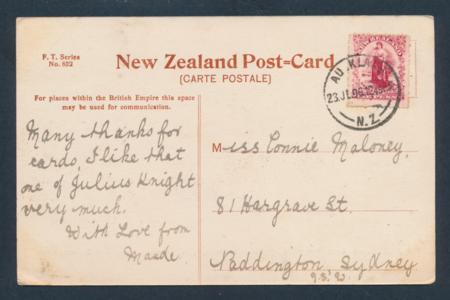 F. T. Series
No. 692
New Zealand Post=Card
(CARTE POSTALE)
For places within the British Empire this space
may be used for communication.
Many thanks for
cards, I like that
one of Julius Knight
very much.
With Love from
Maude.
AUCKLAND
N.Z.
Miss Connie Maloney,
81 Hargrave St.
Paddington, Sydney